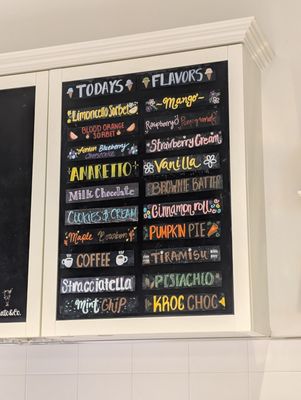 TODAYS FLAVORS
Limoncello Sorbet
BLOOD ORANGE SORBET
Lemon Blueberry Cheesecake
AMARETTO
Milk Chocolate
Cookies & Cream
Maple Bourbon
COFFEE
Stracciatella
Mint CHIP
Mango
Raspberry Pomegranate
Strawberry Cream
Vanilla
BROWNIE BATTER
Cinnamon roll
PUMPKIN PIE
TIRAMISU
PESTACHIO
KROC CHOC